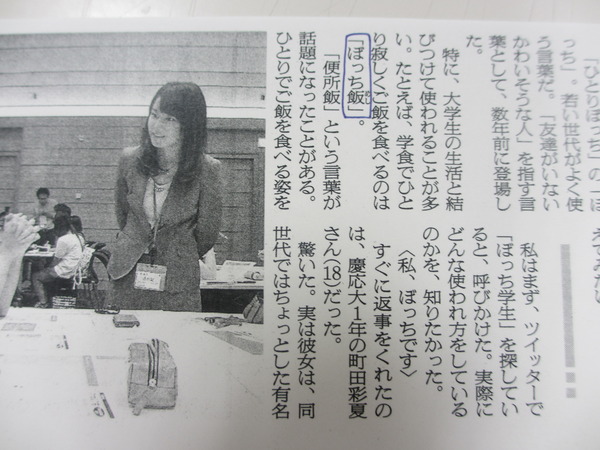 「ひとりぼっち」の「ぼ
っち」。若い世代がよく使
う言葉だ。「友達がいない
かわいそうな人」を指す言
葉として、数年前に登場し
た。
特に、大学生の生活と結
びつけて使われることが多
い。たとえば、学食でひと
り寂しくご飯を食べるのは
「ぼっち飯」。
めし
「便所飯」という言葉が
話題になったことがある。
ひとりでご飯を食べる姿を
えてみたい
私はまず、ツイッターで
「ぼっち学生」を探してい
ると、呼びかけた。実際に
どんな使われ方をしている
のかを、知りたかった。
〈私、ぼっちです〉
すぐに返事をくれたの
は、慶応大1年の町田彩夏
さん(18)だった。
驚いた。実は彼女は、同
世代ではちょっとした有名